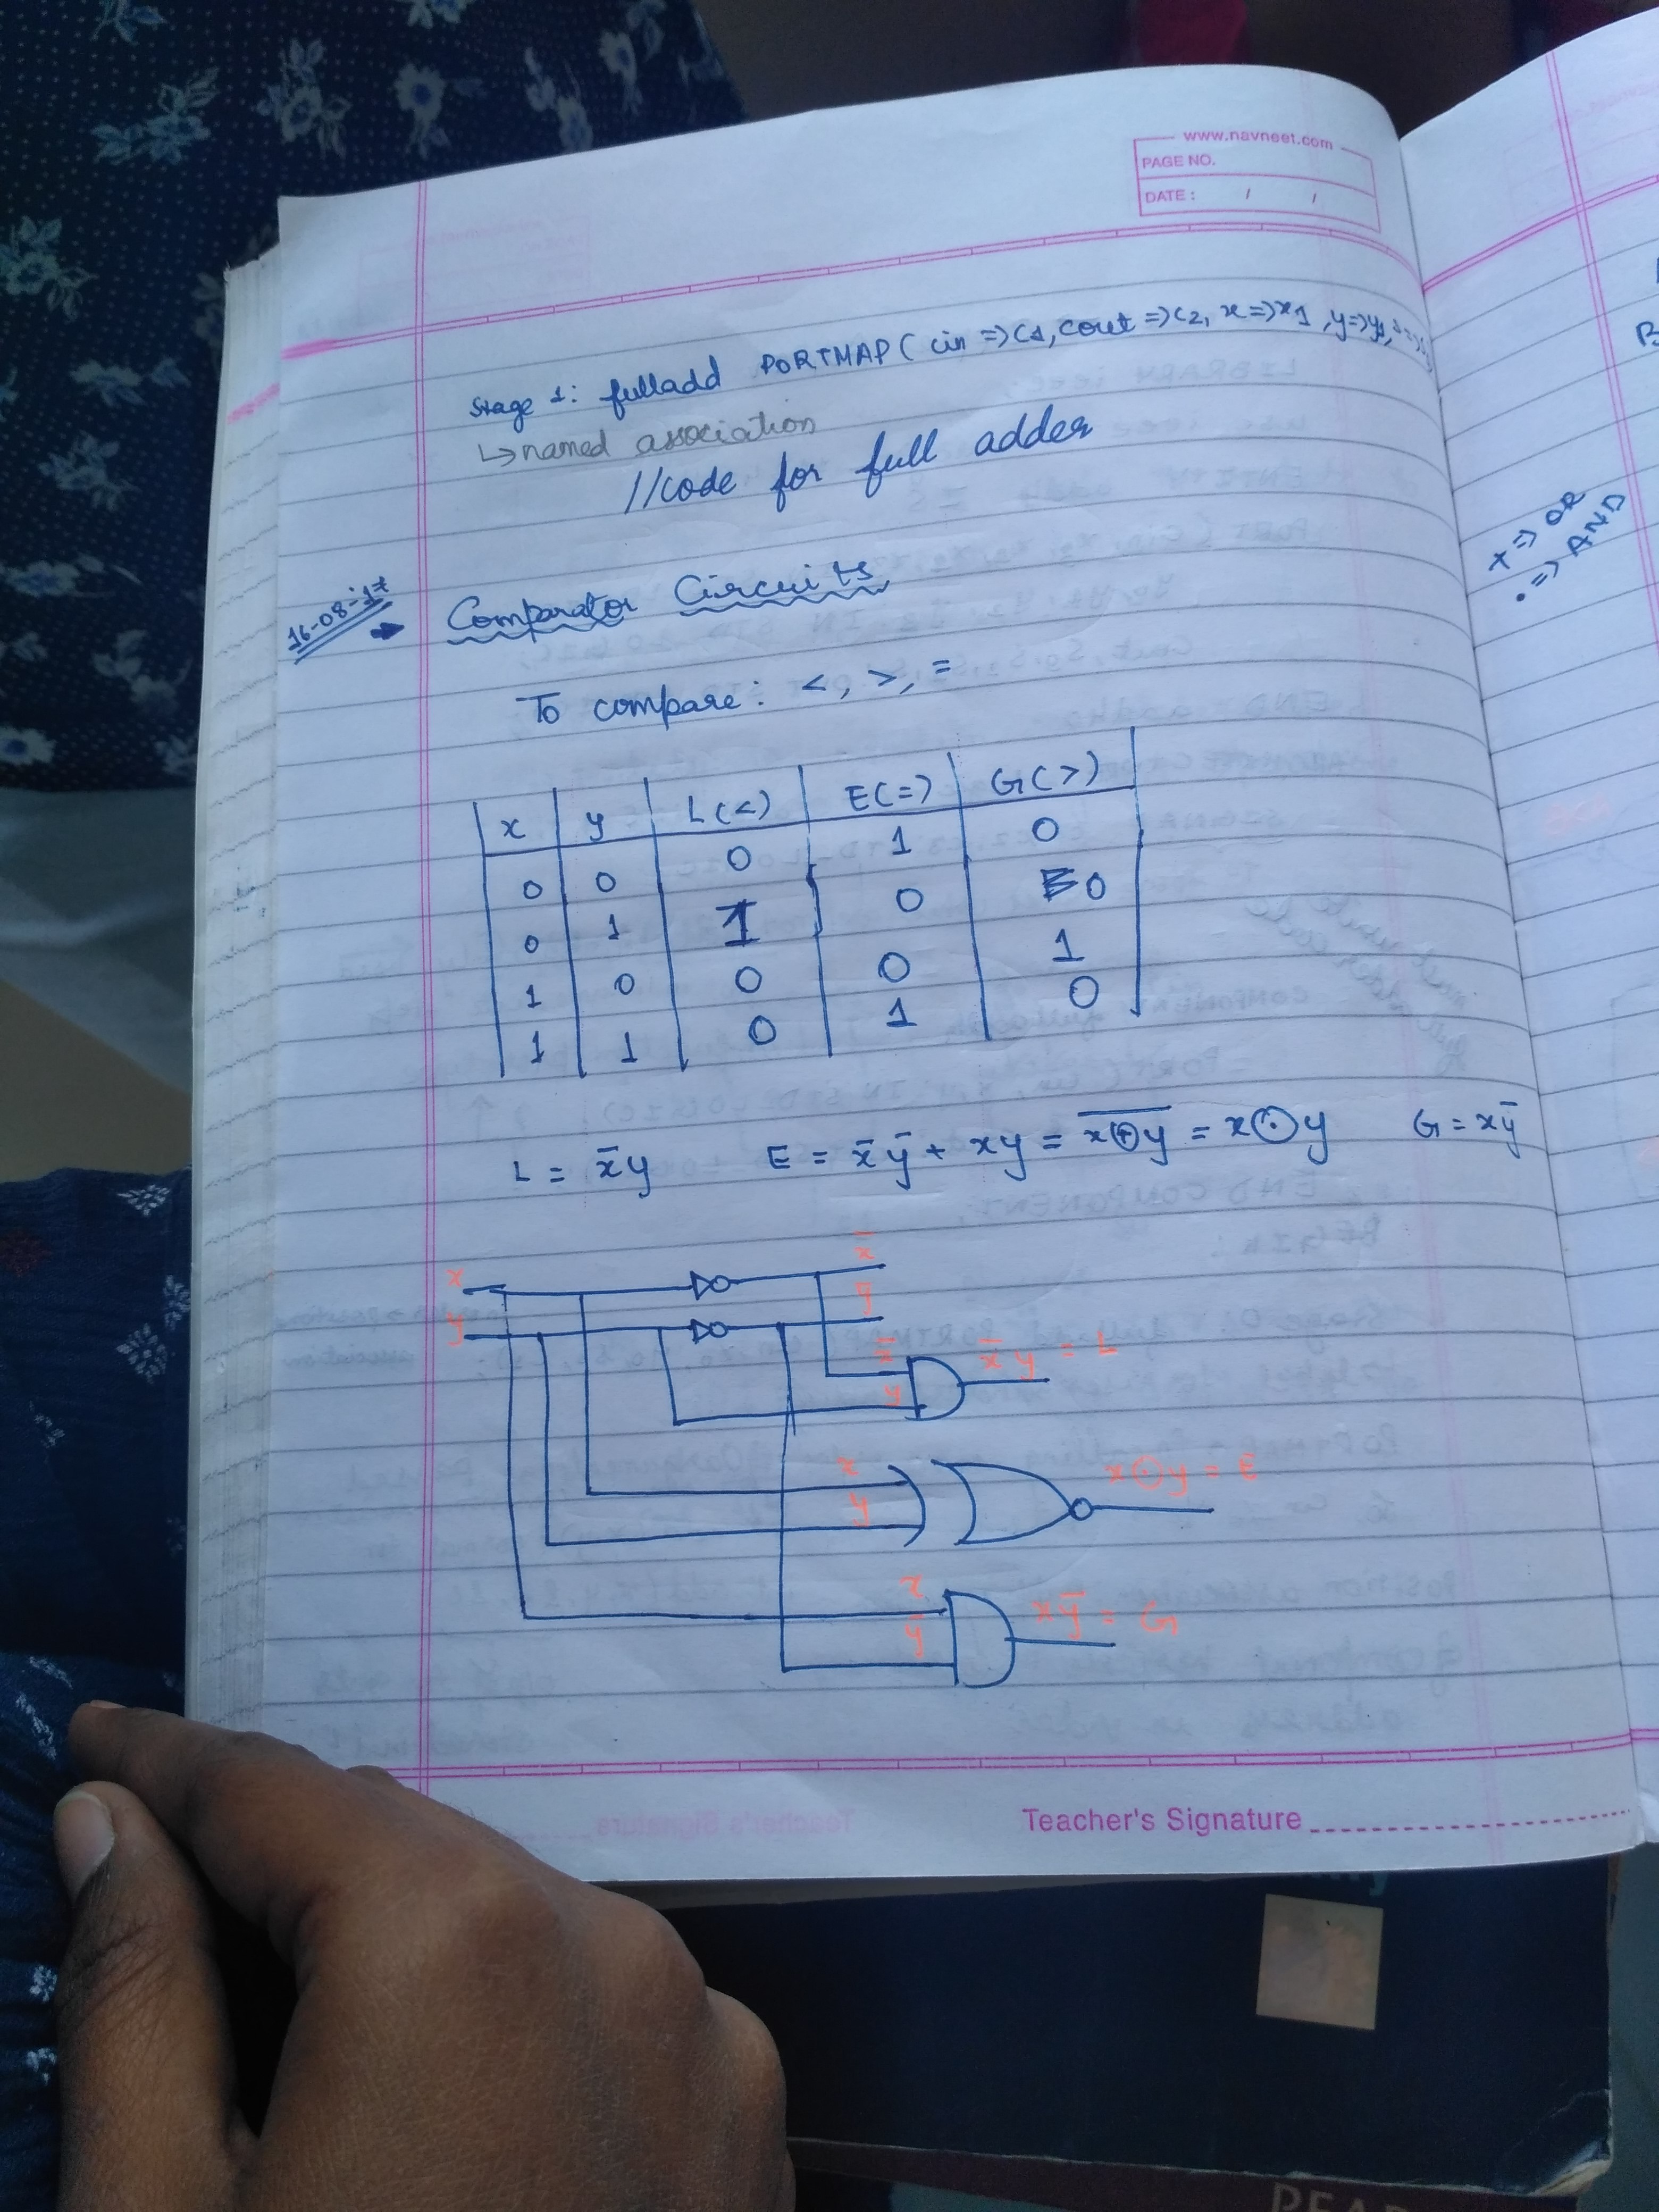 www.navneet.com
PAGE NO.
DATE : / /
Stage 1: fulladd PORTMAP ( cin => C1, cout => C2, x => x1, y => y1,
↳ named association
//code for full adder
16-08-17
Comparator Circuits
To compare: <, >, =
x y L(<) E(=) G(>)
0 0 0 1 0
0 1 1 0 0
1 0 0 0 1
1 1 0 1 0
L = x̅y E = x̅y̅ + xy = \overline{x⊕y} = x⊙y G = xy̅
x x̅
y y̅
x̅ x̅y = L
y
x x⊙y = E
y
x xy̅ = G
y̅
Teacher's Signature
+ => OR
. => AND